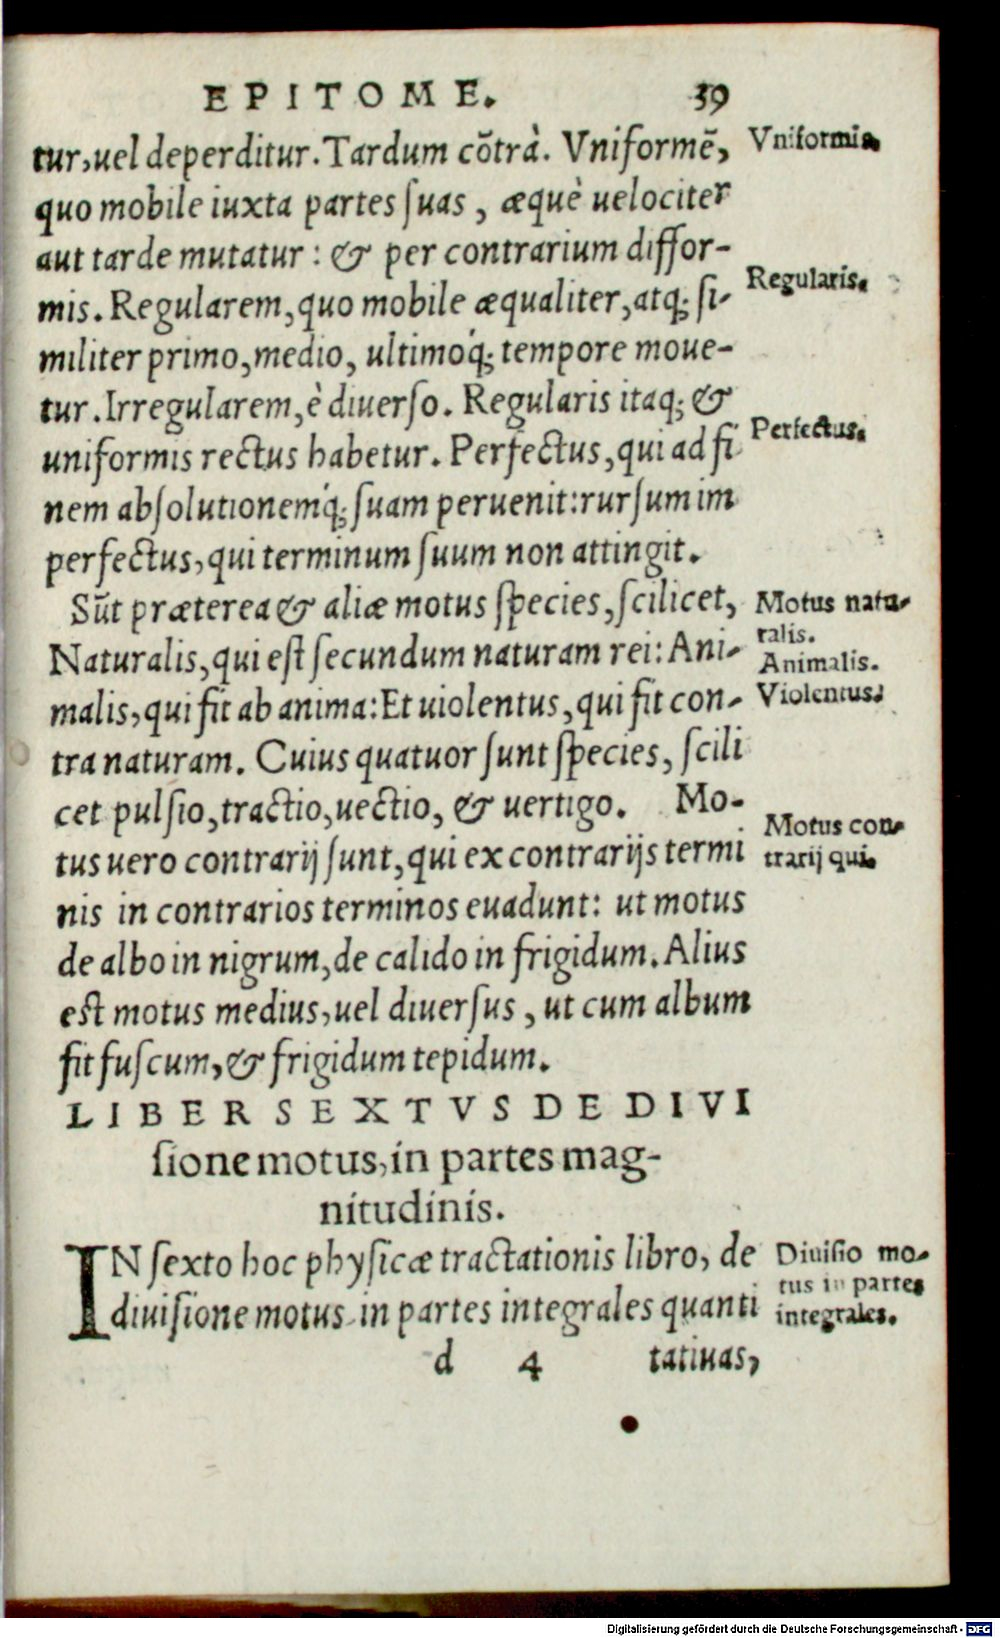 EPITOME. 39
tur, uel deperditur. Tardum cõtrà. Vniformẽ,
Vniformis.
quo mobile iuxta partes ſuas, æquè uelociter
aut tarde mutatur: & per contrarium diffor-
mis. Regularem, quo mobile æqualiter, atq; ſi-
Regularis.
militer primo, medio, ultimoq́; tempore moue-
tur. Irregularem, è diuerſo. Regularis itaq; &
uniformis rectus habetur. Perfectus, qui ad fi
Perfectus.
nem abſolutionemq́; ſuam peruenit: rurſum im
perfectus, qui terminum ſuum non attingit.
Sũt præterea & aliæ motus ſpecies, ſcilicet,
Motus natu-
ralis.
Naturalis, qui eſt ſecundum naturam rei: Ani-
Animalis.
malis, qui fit ab anima: Et uiolentus, qui fit con-
Violentus.
tra naturam. Cuius quatuor ſunt ſpecies, ſcili
cet pulſio, tractio, uectio, & uertigo. Mo-
tus uero contrarij ſunt, qui ex contrarijs termi
Motus con-
trarij qui.
nis in contrarios terminos euadunt: ut motus
de albo in nigrum, de calido in frigidum. Alius
eſt motus medius, uel diuerſus, ut cum album
fit fuſcum, & frigidum tepidum.
LIBER SEXTVS DE DIVI
ſione motus, in partes mag-
nitudinis.
IN ſexto hoc phyſicæ tractationis libro, de
diuiſione motus in partes integrales quanti
Diuiſio mo-
tus in partes
integrales.
d 4 tatiuas,
Digitalisierung gefördert durch die Deutsche Forschungsgemeinschaft - DFG